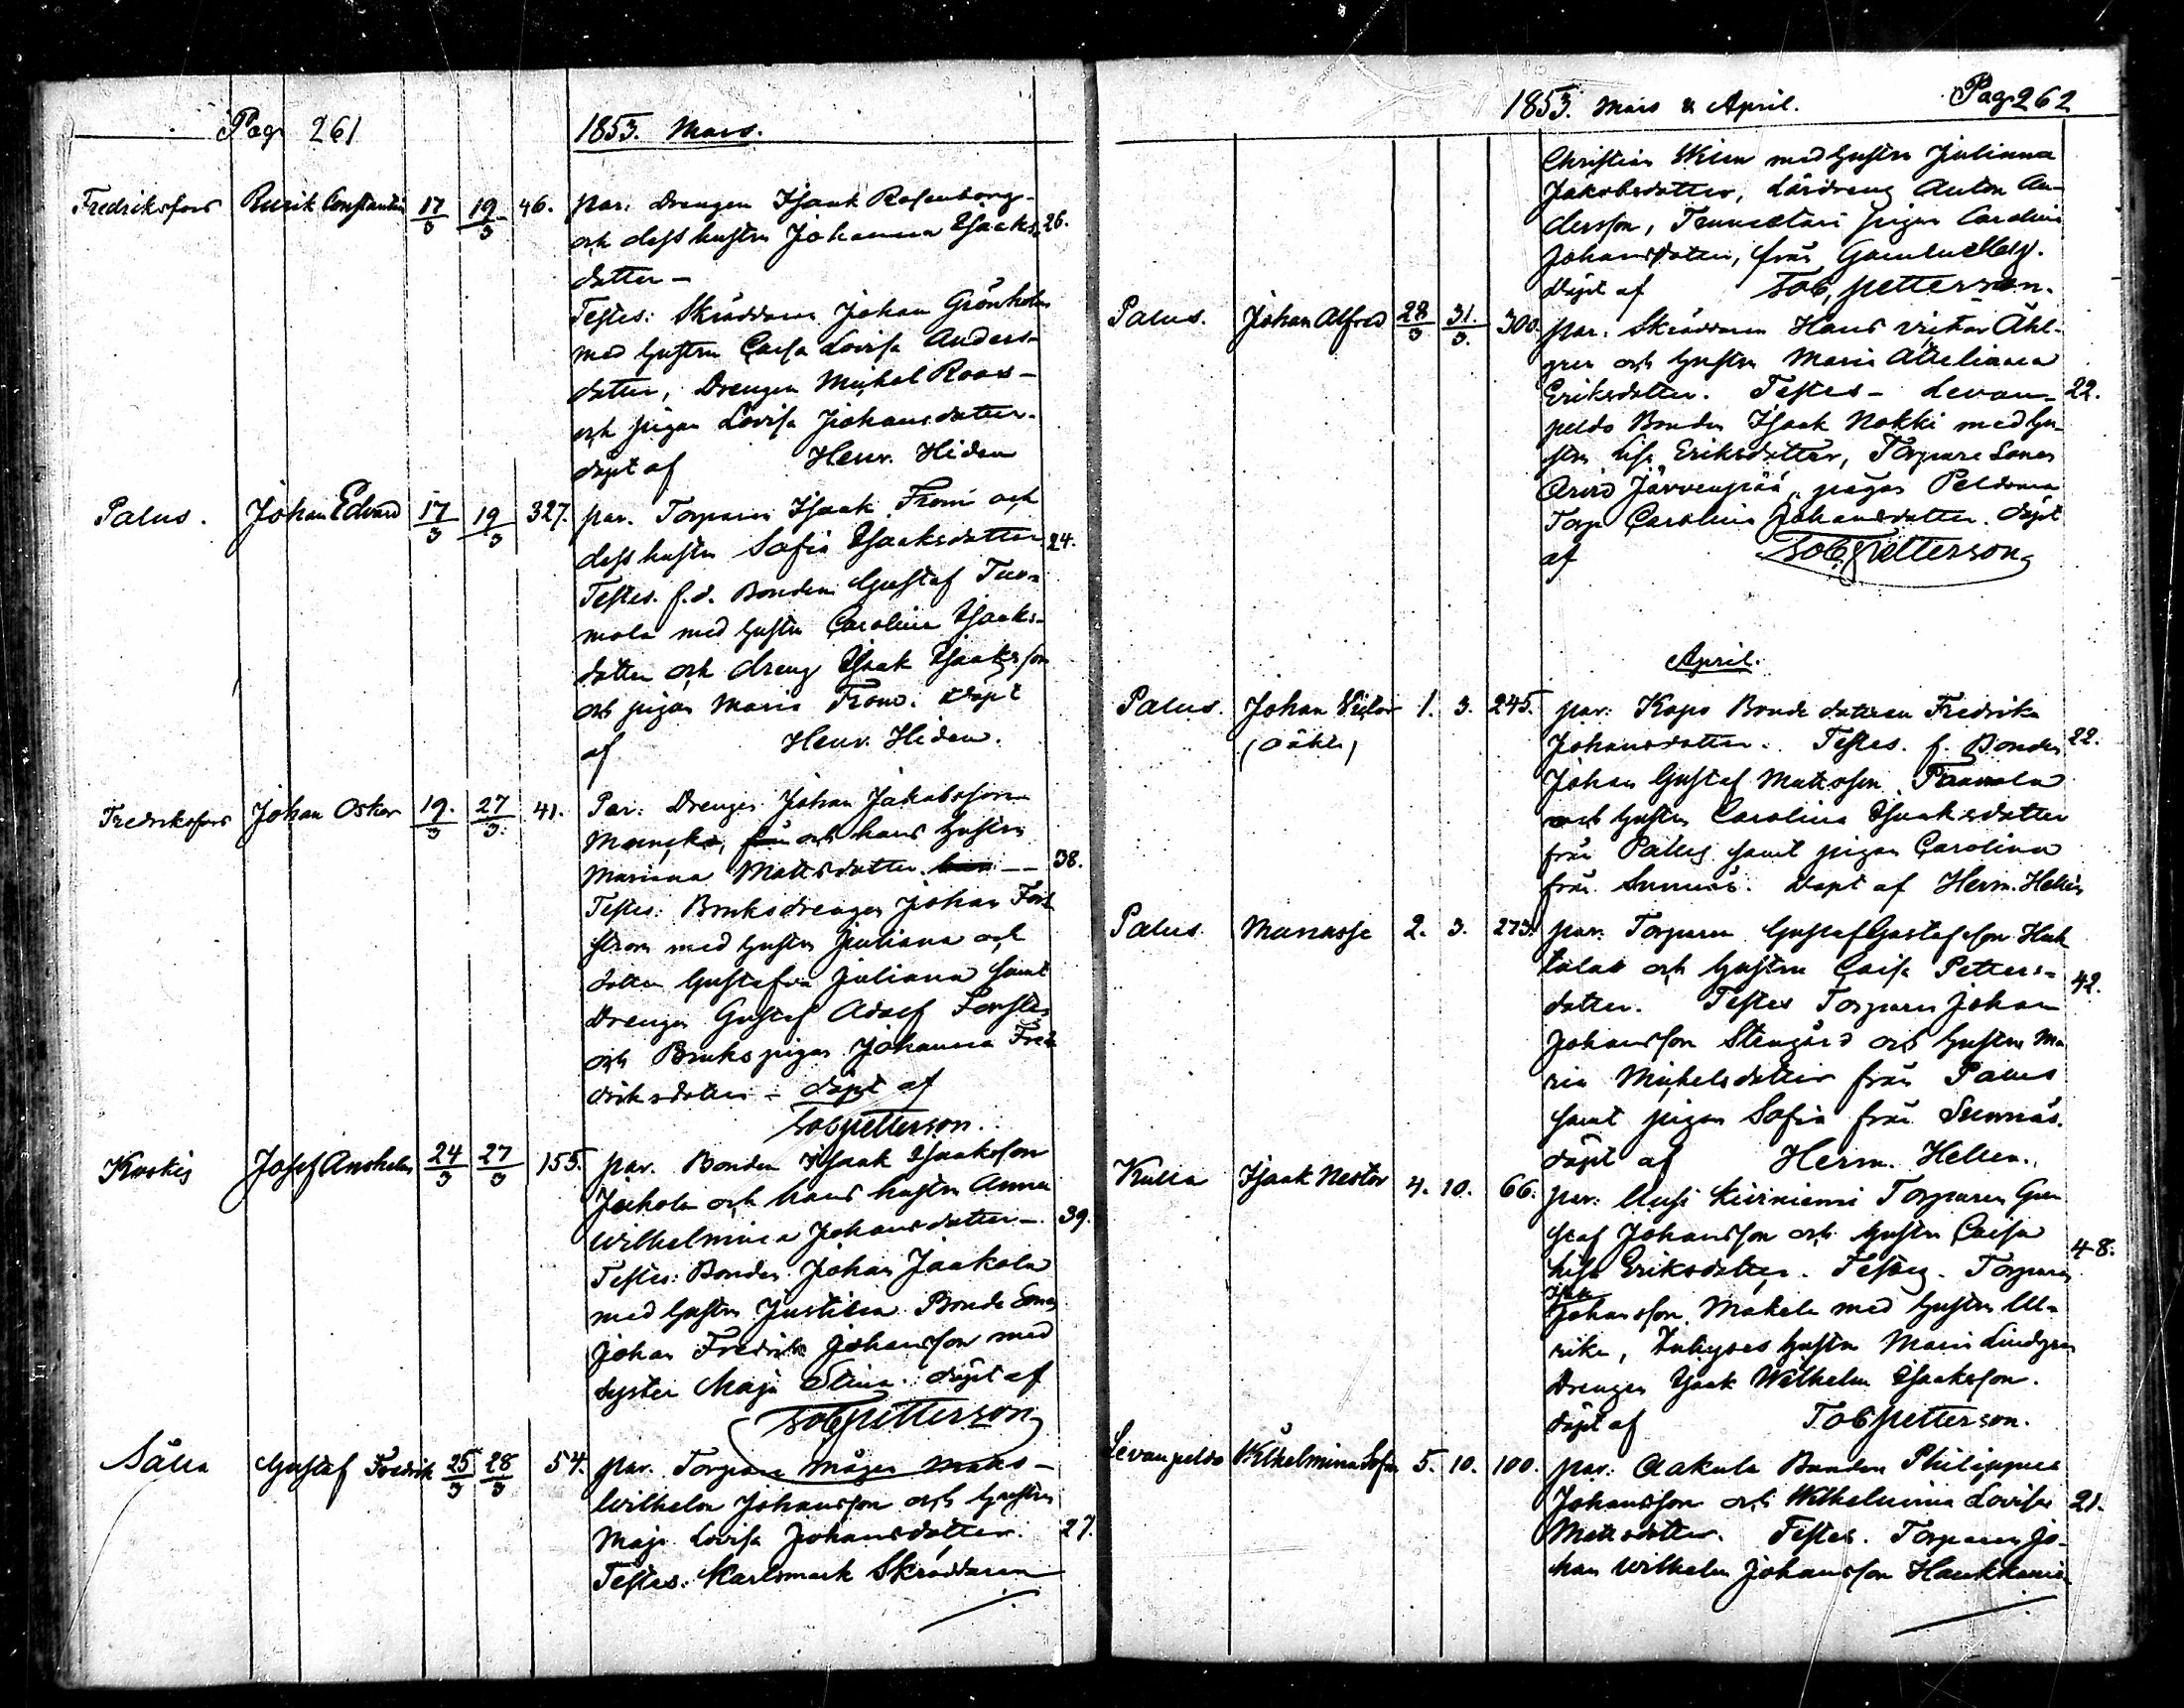 Pag 261
1853. Mars.
Fredriksfors Rurik Constantin 17/3 19/3 46. par: drengen Isaak Rosenborg
och dess hustru Johanna Isaks- 26.
dotter –
Testes: Skräddaren Johan Grönholm
med hustrun Caisa Lovisa Anders-
dotter, Drengen Michel Roos –
och pigan Lovisa Johansdotter.
döpt af Henr. Hiden
Palus. Johan Edvard 17/3 19/3 327. par. Torparen Isaak Fromi och
dess hustru Sofia Isaaksdotter 24.
Testes. f.d. Bonden Gustaf Tuo-
mola med hustru Carolina Isaaks-
dotter och dreng Isaak Isaaksson
och pigan Maria From. döpt
af Henr. Hiden.
Fredriksfors Johan Oskar 19./3 27/3. 41. Par: Drengen Johan Jakobsson
och hans hustru
Mariana Mattsdotter – – 38.
Testes: Bruksdrengen Johan Fors
ström med hustru Juliana och
dotter Gustafva Juliana samt
Drengen Gustaf Adolf
och Brukspigan Johanna Fred
driksdotter – döpt af
Tob Petterson.
Koskis Josef Anshelm 24/3 27/3 155. par. Bonden Isaak Isaaksson
och hans hustru Anna
Wilhelmina Johansdotter – 39.
Testes: Bonden Johan Jaakola
med hustru Justina Bonde Sonen
Johan Fredrik Johansson med
syster Maja Stina. döpt af
Tob Petterson
Sälla Gustaf Fredrik 25/3 28/3 54. par. Torpare mågen
Wilhelm Johansson och hustru
Maja Lovisa Johansdotter. 27.
Testes: Karlsmark Skräddaren
1853. Mars & April. Pag 262
Christian med hustru Julianna
Jakobsdotter, Lärdreng Anton An-
dersson, pigan Carolina
Johansdotter, från
döpt af Tob, Petterson.
Palus. Johan Alfred 28/3 31./3. 300. par. Skräddaren Hans Victor Åhl-
gren och hustru Maria Adeliana
Eriksdotter. Testes – Levan- 22.
peldo Bonden Isaak Nokki med hu-
stru Lisa Eriksdotter, Torpare Sonen
Arvid Järvenpää, pigan Peldoma
Torp Carolina Johansdotter. döpt
af Tob Petterson
April.
Palus. Johan Victor 1. 3. 245. par: Kapo Bonde dotteren Fredrika
Johansdotter. Testes. f. Bonden 22.
Johan Gustaf Mattsson
och hustru Carolina Isaaksdotter
från Palus samt pigan Carolina
från Sunnäs. döpt af Herm. Hellén
Palus Manasse 2. 3. 273. par. Torparen Gustaf Gustafsson Huh
talax och hustru Caisa Petters-
dotter. Testes Torparen Johan 42.
Johansson Stengård och hustru Ma
ria Michelsdotter från Palus
samt pigan Sofia från Sunnäs.
döpt af Herm. Hellen.
Kulla Isaak Nestor 4. 10. 66. par: Uusi Kiviniemi Torparen Gus
staf Johansson och hustru Caisa
Lisa Eriksdotter. Testes. Torparen 48.
Johansson Makela med hustru Ul-
rika, hustru Maria Lindgren
Drengen Isaak Wilhelm Isaaksson.
döpt af Tob Petterson.
Levanpeldo Wilhelmina Sofia 5. 10. 100. par: Aakula Bonden Philippus
Johansson och Wilhelmina Lovisa 21.
Mattsdotter. Testes. Torparen Jo-
han Wilhelm Johansson